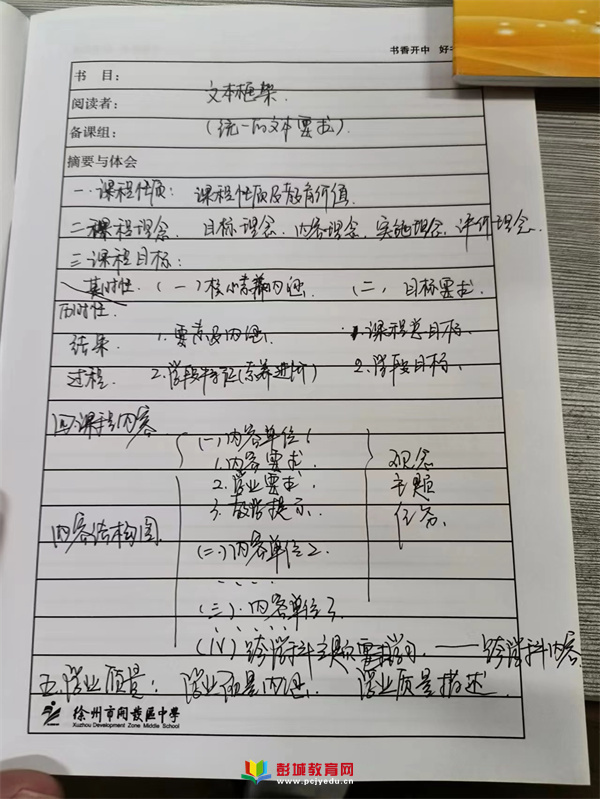 书香开中 好
书 目：
阅读者：
备课组：
文本框架.
(统一的文本要求).
摘要与体会
一.课程性质： 课程性质及教育价值
二.课程理念. 目标理念、内容理念、实施理念、评价理念.
三.课程目标：
共时性. (一)核心素养内涵. (二)目标要求.
历时性
结果. 1.要素及内涵. 1.课程总目标.
过程. 2.学段特征(素养进阶) 2.学段目标.
四.课程内容
(一)内容单位1
1.内容要求.
2.学业要求.
3.教学提示.
观念
主题
任务.
内容结构图.
(二)内容单位2
....
(三).内容单位3
....
(IV)跨学科主题 学习.——跨学科内容
五.学业质量： 学业质量内涵. 学业质量描述.
徐州市开发区中学
Xuzhou Development Zone Middle School
彭城教育网
www.pcjyedu.cn